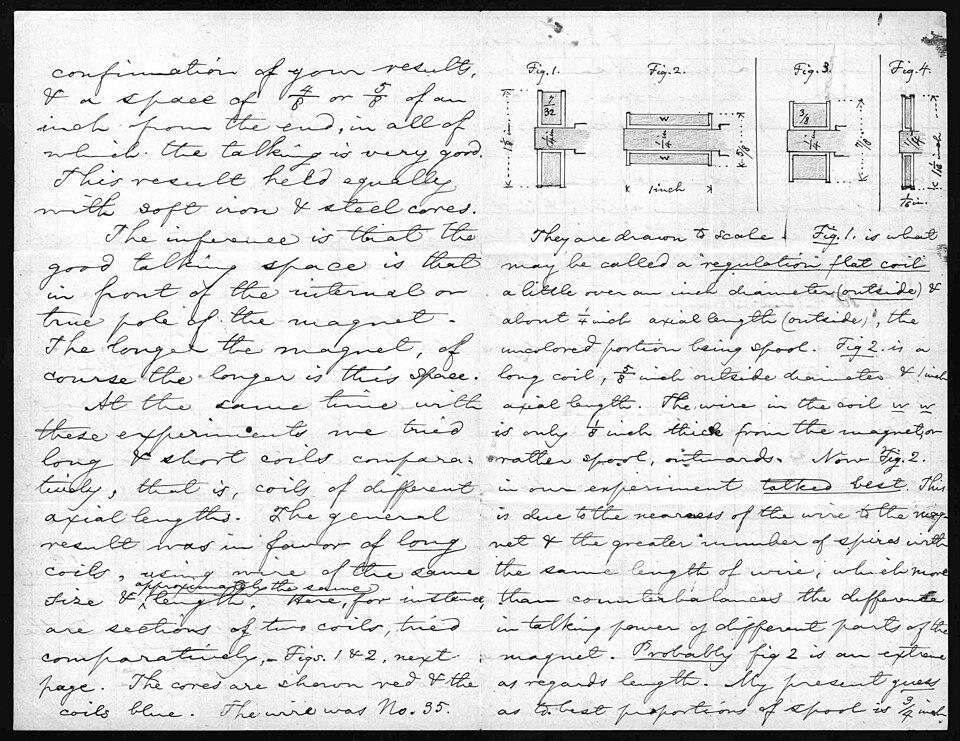 confirmation of your result,
& a space of 4/8 or 5/8 of an
inch from the end, in all of
which the talking is very good.
This result held equally
with soft iron & steel cores.
The inference is that the
good talking space is that
in front of the internal or
true pole of the magnet.
The longer the magnet, of
course the longer is this space.
At the same time with
these experiments we tried
long & short coils compara-
tively, that is, coils of different
axial lengths. The general
result was in favor of long
coils, using wire of the same
approximately the same
size & length. Here, for instance,
are sections of two coils, tried
comparatively, - Figs. 1 & 2, next
page. The cores are shown red & the
coils blue. The wire was No. 35.
Fig. 1. Fig. 2. Fig. 3. Fig. 4.
1 1/8 7/32 1/4 w 1/4 w 5/8 3/8 1/4 7/8 1/4 1 1/8 inch
1 inch 1/16 in.
They are drawn to scale. Fig. 1. is what
may be called a "regulation flat coil"
a little over an inch diameter (outside) &
about 1/4 inch axial length (outside), the
uncolored portion being spool. Fig 2. is a
long coil, 5/8 inch outside diameter & 1 inch
axial length. The wire in the coil w w
is only 1/8 inch thick from the magnet, or
rather spool, outwards. Now Fig. 2.
in our experiment talked best. This
is due to the nearness of the wire to the mag-
net & the greater number of spires with
the same length of wire, which more
than counterbalances the difference
in talking power of different parts of the
magnet. Probably fig 2 is an extreme
as regards length. My present guess
as to best proportions of spool is 3/4 inch